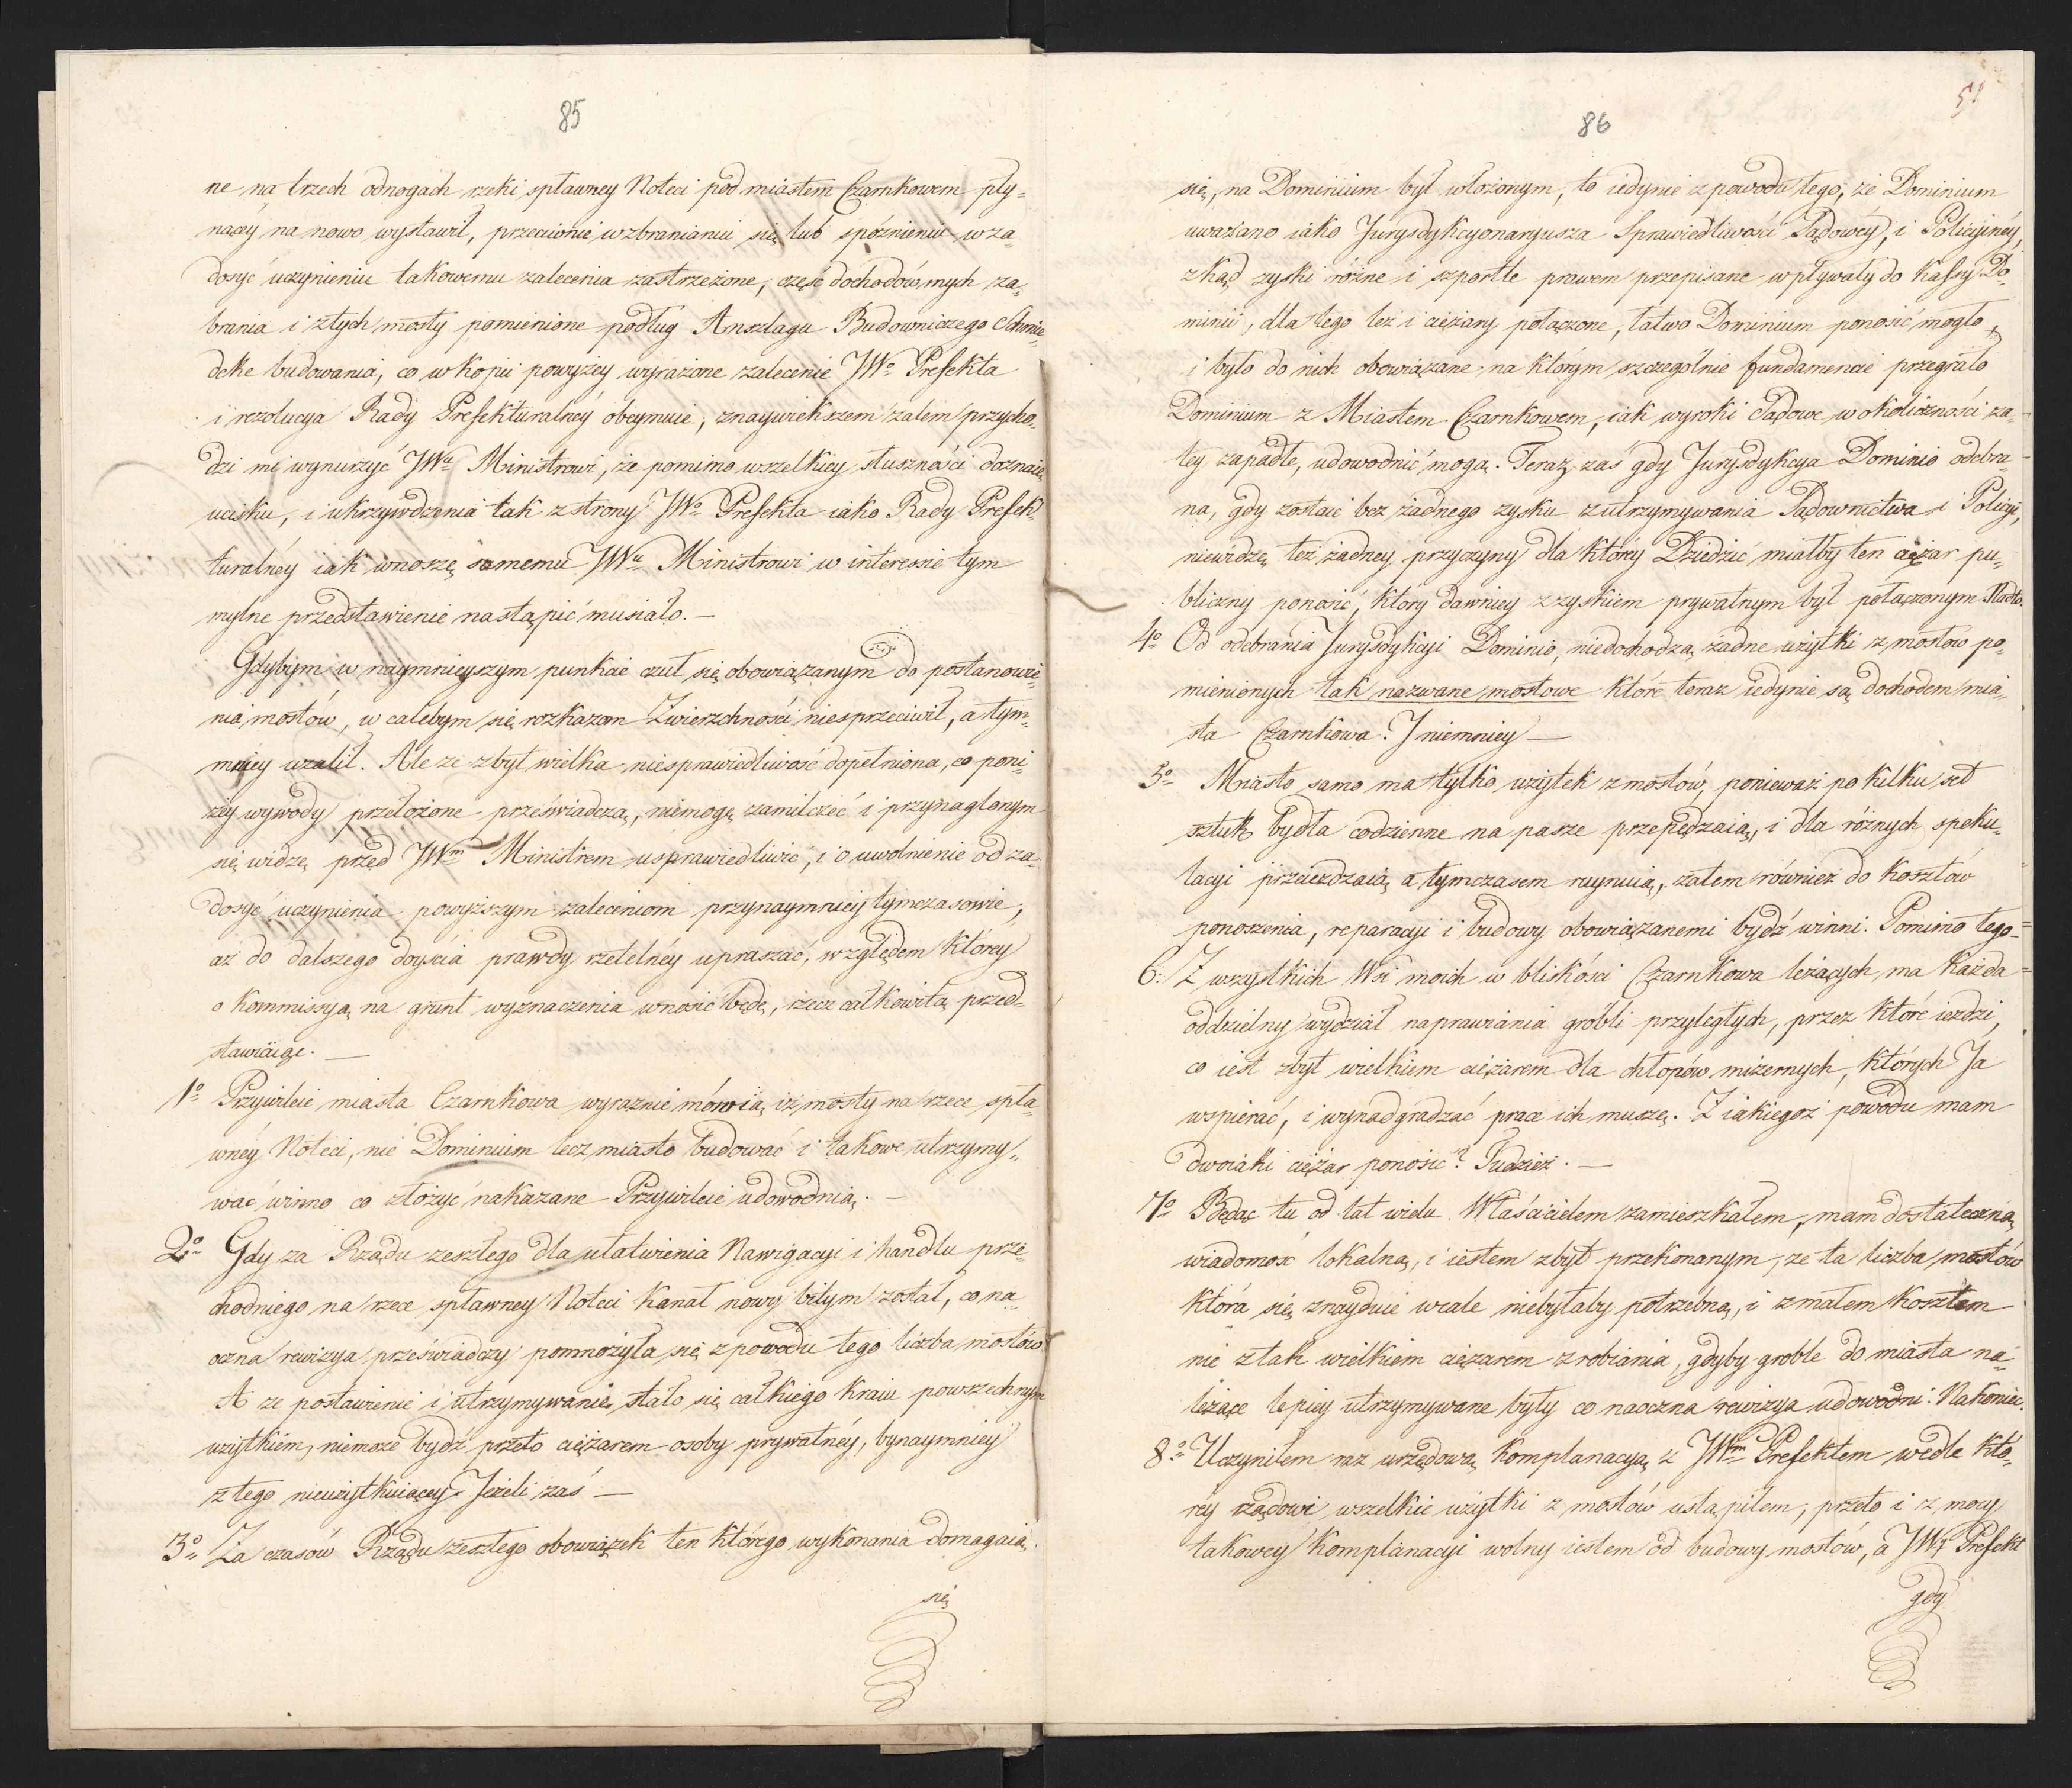 85
ne na trzech odnogach rzeki spławney Noteci pod miastem Czarnkowem pły„
nącéy na nowo wystawił, przeciwnie wzbranianiu się lub spóźnieniu w za„
dosyć uczynieniu takowemu zalecenia zastrzeżone, część dochodów mych za„
brania i ztych mosty pomienione podług Anszlagu Budowniczego Schmie„
deke budowania, co w kopii powyżey wyrażone zalecenie JWo Prefekta
i rezolucya Rady Prefekturalnéy obeymuie, znaywiekszem żalem przycho„
dzi mi wynurzyć JWu Ministrowi, że pomimo wszelkiey słuszności doznaię
ucisku, i ukrzywdzenia tak z strony JWo Prefekta iako Rady Prefek„
turalnéy iak wnoszę samemu JWu Ministrowi w interessie tym
mylne przedstawienie nastąpić musiało. —
Gdybym w naymnieyszym punkcie czuł się obowiązanym do postanowie„
nia mostów, w calebym się rozkazom Zwierzchności niesprzeciwił, a tym„
mniey użalił. Ale że zbyt wielka niesprawiedliwość dopełniona, co poni„
żey wywody przełożone przeświadczą, niemogę zamilczeć i przynaglonym
się widzę przed JWm Ministrem usprawiedliwić, i o uwolnienie od za„
dosyć uczynienia powyższym zaleceniom przynaymniey tymczasowie,
aż do dalszego doyścia prawdy rzetelnéy upraszać, względem którey
o Kommissyą na grunt wyznaczenia wnosić będę, rzecz całkowitą przed„
stawiaiąc. —
1o Przywileie miasta Czarnkowa wyraznie mówią, iż mosty na rzece spła„
wnéy Noteci, nie Dominium lecz miasto budować i takowe utrzymy„
wać winno co złożyć nakazane Przywileie udowodnią. —
2o Gdy za Rządu zeszłego dla ułatwienia Nawigacyi i handlu prze„
chodniego na rzece spławney Noteci Kanał nowy bitym został, co na„
oczna rewizya przeświadczy pomnożyła się z powodu tego liczba mostów
A że postawienie i utrzymywanie stało się całkiego Kraiu powszechnym
użytkiem, niemoże bydź przeto ciężarem osoby prywatnéy, bynaymniey
z tego nieużytkuiącey. Jeżeli zaś —
3o Za czasów Rządu zeszłego obowiązek ten którego wykonania domagaią
się
51
86
się, na Dominium był włożonym, to iedynie z powodu tego, że Dominium
uważano iako Jurysdykcyonaryusza Sprawiedliwości Sądowéy, i Policyinéy,
zkąd zyski różne i szportle prawem przepisane wpływały do Kassy Do„
minii, dla tego też i ciężary połączone, łatwo Dominium ponosić mogło,
i było do nich obowiązane na którym szczególnie fundamencie przegrało
Dominium z Miastem Czarnkowem, iak wyroki Sądowe w okoliczności za„
tey zapadłe, udowodnić mogą. Teraz zaś gdy Jurysdykcya Dominio odebra„
na, gdy zostaie bez żadnego zysku z utrzymywania Sądownictwa i Policyi,
niewidzę też żadney przyczyny dla którey Dziedzic miałby ten ciężar pu„
bliczny ponosić, który dawniey z zyskiem prywatnym był połączonym. Nadto.
4o Od odebrania Jurysdykcyi Dominio, niedochodzą żadne użytki z mostów po„
mienionych tak nazwane mostowe które teraz iedynie są dochodem mia„
sta Czarnkowa. J niemniey —
5o Miasto samo ma tylko użytek z mostów, ponieważ po kilku set
sztuk bydła codzienne na pasze przepędzaią, i dla różnych speku„
lacyi przeieżdzaią a tymczasem ruynuią, zatem również do kosztów
ponoszenia, reparacyi i budowy obowiązanemi bydź winni. Pomimo tego
6: Z wszystkich Wsi moich w bliskości Czarnkowa leżących ma każda
oddzielny wydział naprawiania gróbli przyległych, przez które ieżdzi,
co iest zbyt wielkiem ciężarem dla chłopów mizernych, których Ja
wspierać, i wynadgradzać prace ich muszę. Z iakiegoż powodu mam
dwoiaki ciężar ponosić? Tudzież. —
7o Będąc tu od lat wielu Właścicielem zamieszkałem, mam dostateczną
wiadomość lokalną, i iestem zbyt przekonanym, że ta liczba mostów
która się znayduie wcale niebyłaby potrzebną, i z małem kosztem
nie z tak wielkiem ciężarem zrobiania, gdyby groble do miasta na„
leżące lepiey utrzymywane były co naoczna rewizya udowodni. Nakoniec.
8o Uczyniłem raz urzędową Komplanacyą z JWm Prefektem wedle któ„
rey rządowi wszelkie użytki z mostów ustąpiłem, przeto i z mocy
takowey Komplanacyi wolny iestem od budowy mostów, a JWy Prefekt
gdy